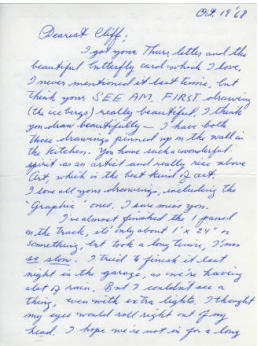 Oct 19 '68
Dearest Cliff:
I got your Thurs. letter and the
beautiful butterfly card which I love.
I never mentioned it last time, but
think your SEE AM FIRST drawing
(the ice bergs) really beautiful. I think
you draw beautifully — I have both
those drawings pinned up on the wall in
the kitchen. You have such a wonderful
spirit as an artist and really rise above
Art, which is the best kind of art.
I love all your drawings, including the
'Graphic' ones. I sure miss you.
I've almost finished the 1 panel
on the truck, it's only about 1' x 24" or
something, but took a long time, I'm
so slow. I tried to finish it last
night in the garage, as we're having
a lot of rain. But I couldn't see a
thing, even with extra lights, I thought
my eyes would roll right out of my
head. I hope we're not in for a long